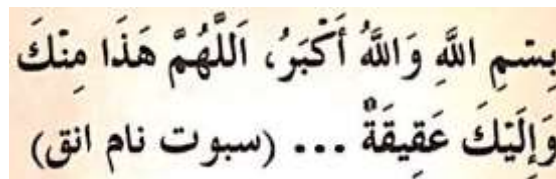 بِسْمِ اللَّهِ وَاللَّهُ أَكْبَرُ، اَللَّهُمَّ هَذَا مِنْكَ
وَإِلَيْكَ عَقِيقَةٌ ... (سبوت نام انق)